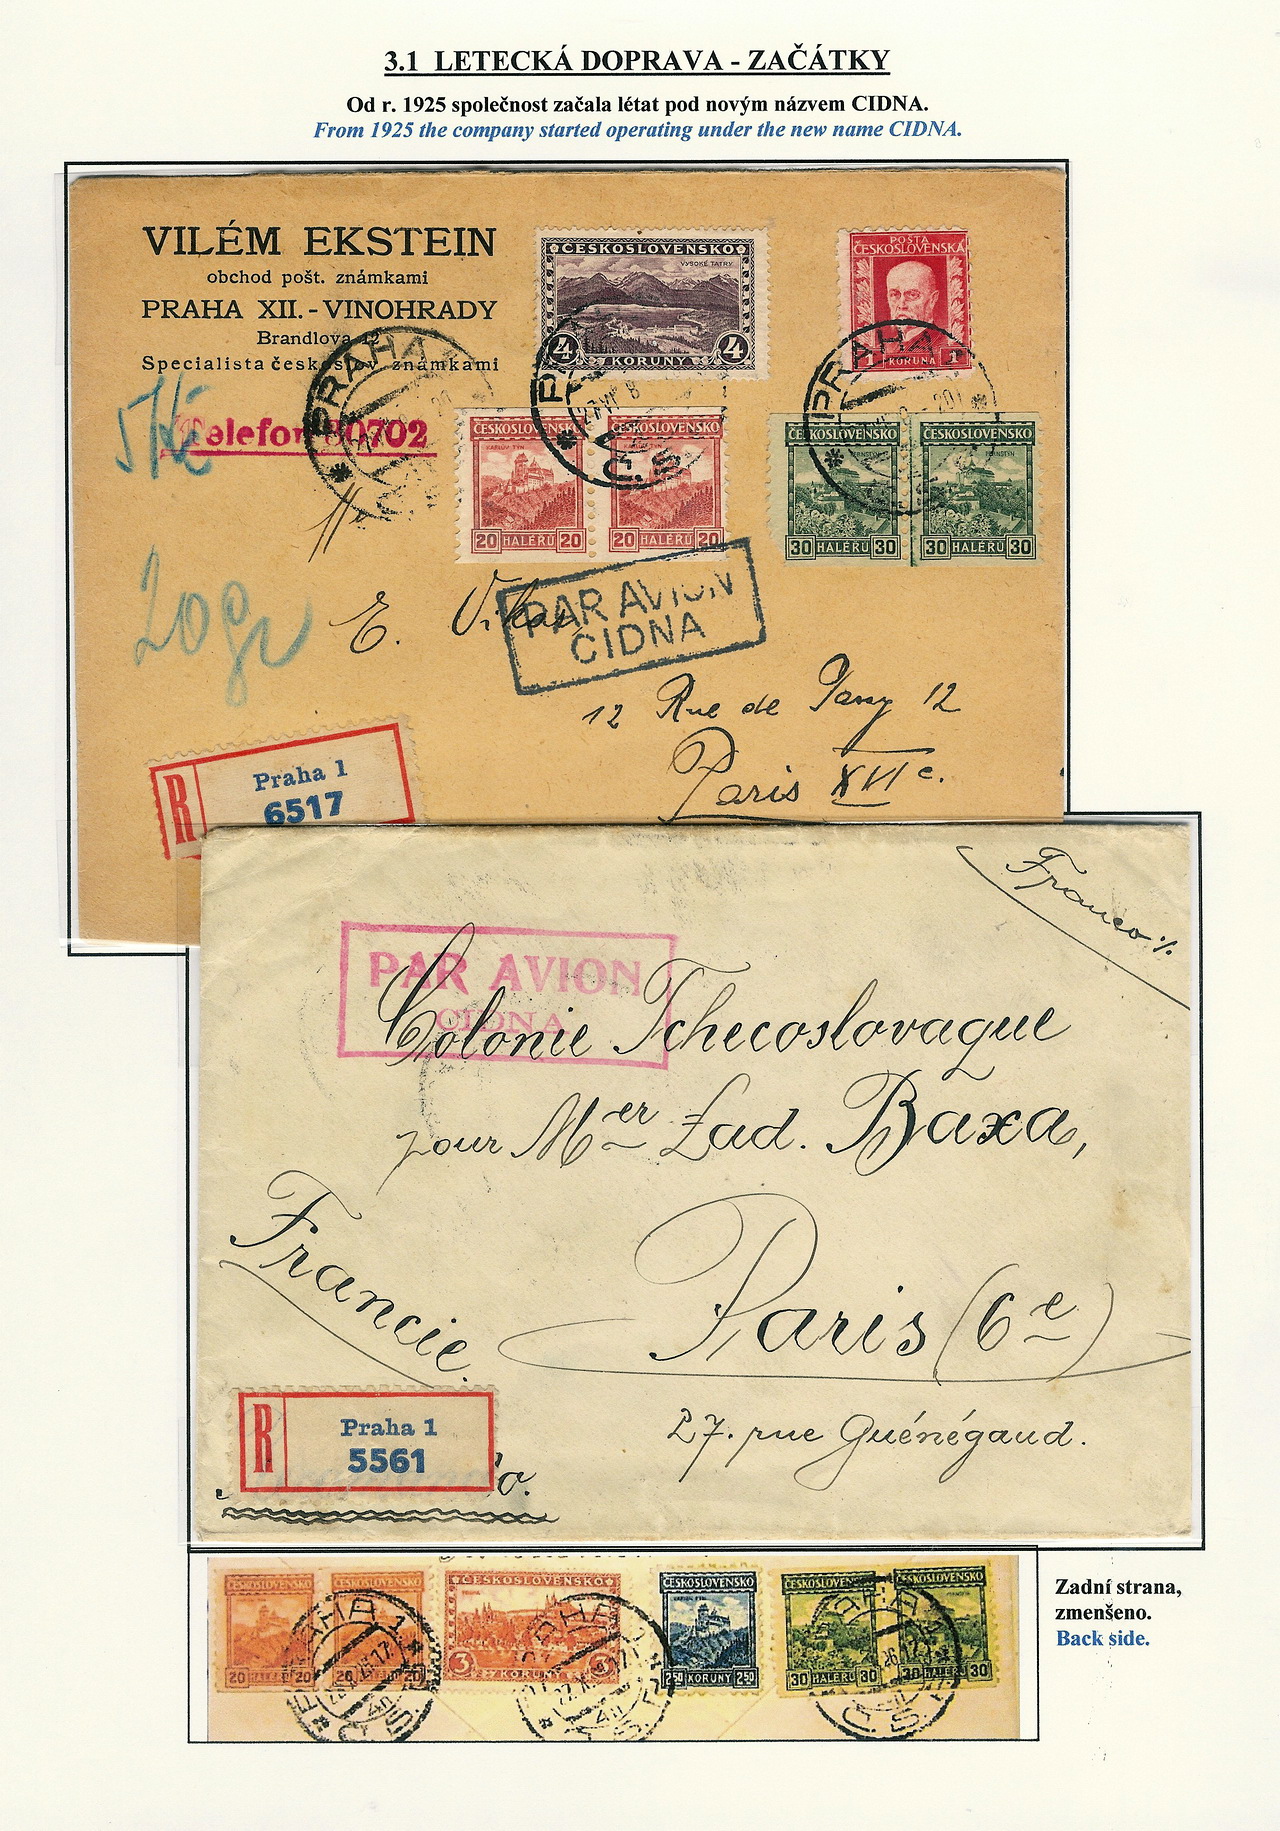 3.1 LETECKÁ DOPRAVA - ZAČÁTKY
Od r. 1925 společnost začala létat pod novým názvem CIDNA.
From 1925 the company started operating under the new name CIDNA.
VILÉM EKSTEIN
obchod pošt. známkami
PRAHA XII. - VINOHRADY
Brandlova 12
Specialista českoslov. známkami
Telefon 80702
5 Kč
20 gr
ČESKOSLOVENSKO
VYSOKÉ TATRY
4 KORUNY 4
POŠTA
ČESKOSLOVENSKÁ
1 KORUNA 1
PRAHA 1
PRAHA 1
PRAHA 1
ČESKOSLOVENSKO ČESKOSLOVENSKO
KARLŮV TÝN
20 HALÉŘŮ 20 20 HALÉŘŮ 20
ČESKOSLOVENSKO ČESKOSLOVENSKO
PERNŠTÝN
30 HALÉŘŮ 30 30 HALÉŘŮ 30
PAR AVION
CIDNA
E.
12 Rue de 12
Paris XVI e.
R Praha 1
6517
Franco
PAR AVION
CIDNA
Colonie Tchecoslovaque
pour Mer Lad. Baxa,
Francie.
Paris (6e)
27. rue Guénégaud.
R Praha 1
5561
ČESKOSLOVENSKO ČESKOSLOVENSKO
20 HALÉŘŮ 20 20 HALÉŘŮ 20
ČESKOSLOVENSKO
PRAHA
3 KORUNY 3
ČESKOSLOVENSKO
KARLŮV TÝN
2.50 KORUNY 2.50
ČESKOSLOVENSKO ČESKOSLOVENSKO
30 HALÉŘŮ 30 30 HALÉŘŮ 30
PRAHA 1
PRAHA 1
PRAHA 1
Zadní strana,
zmenšeno.
Back side.